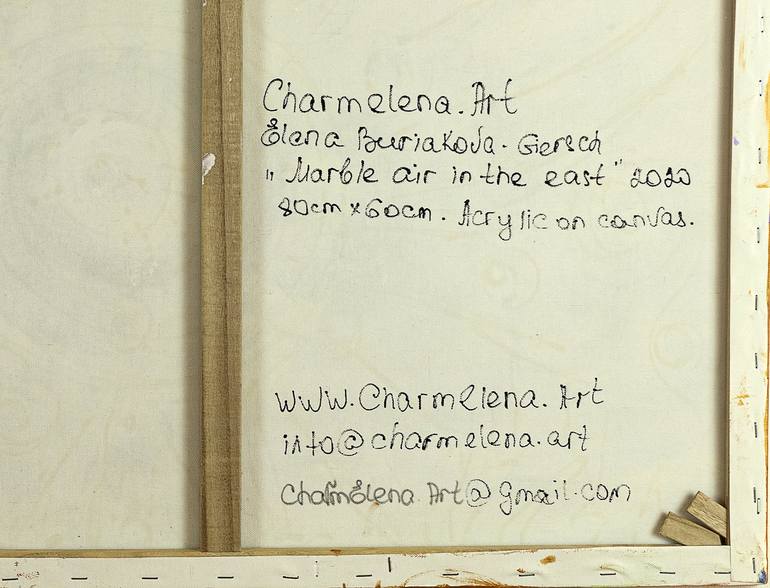 Charmelena.Art
Elena Buriakova-Giersch
"Marble air in the east" 2020
80cm x 60cm. Acrylic on canvas.
www.Charmelena.Art
info@charmelena.art
Charmelena.Art@gmail.com